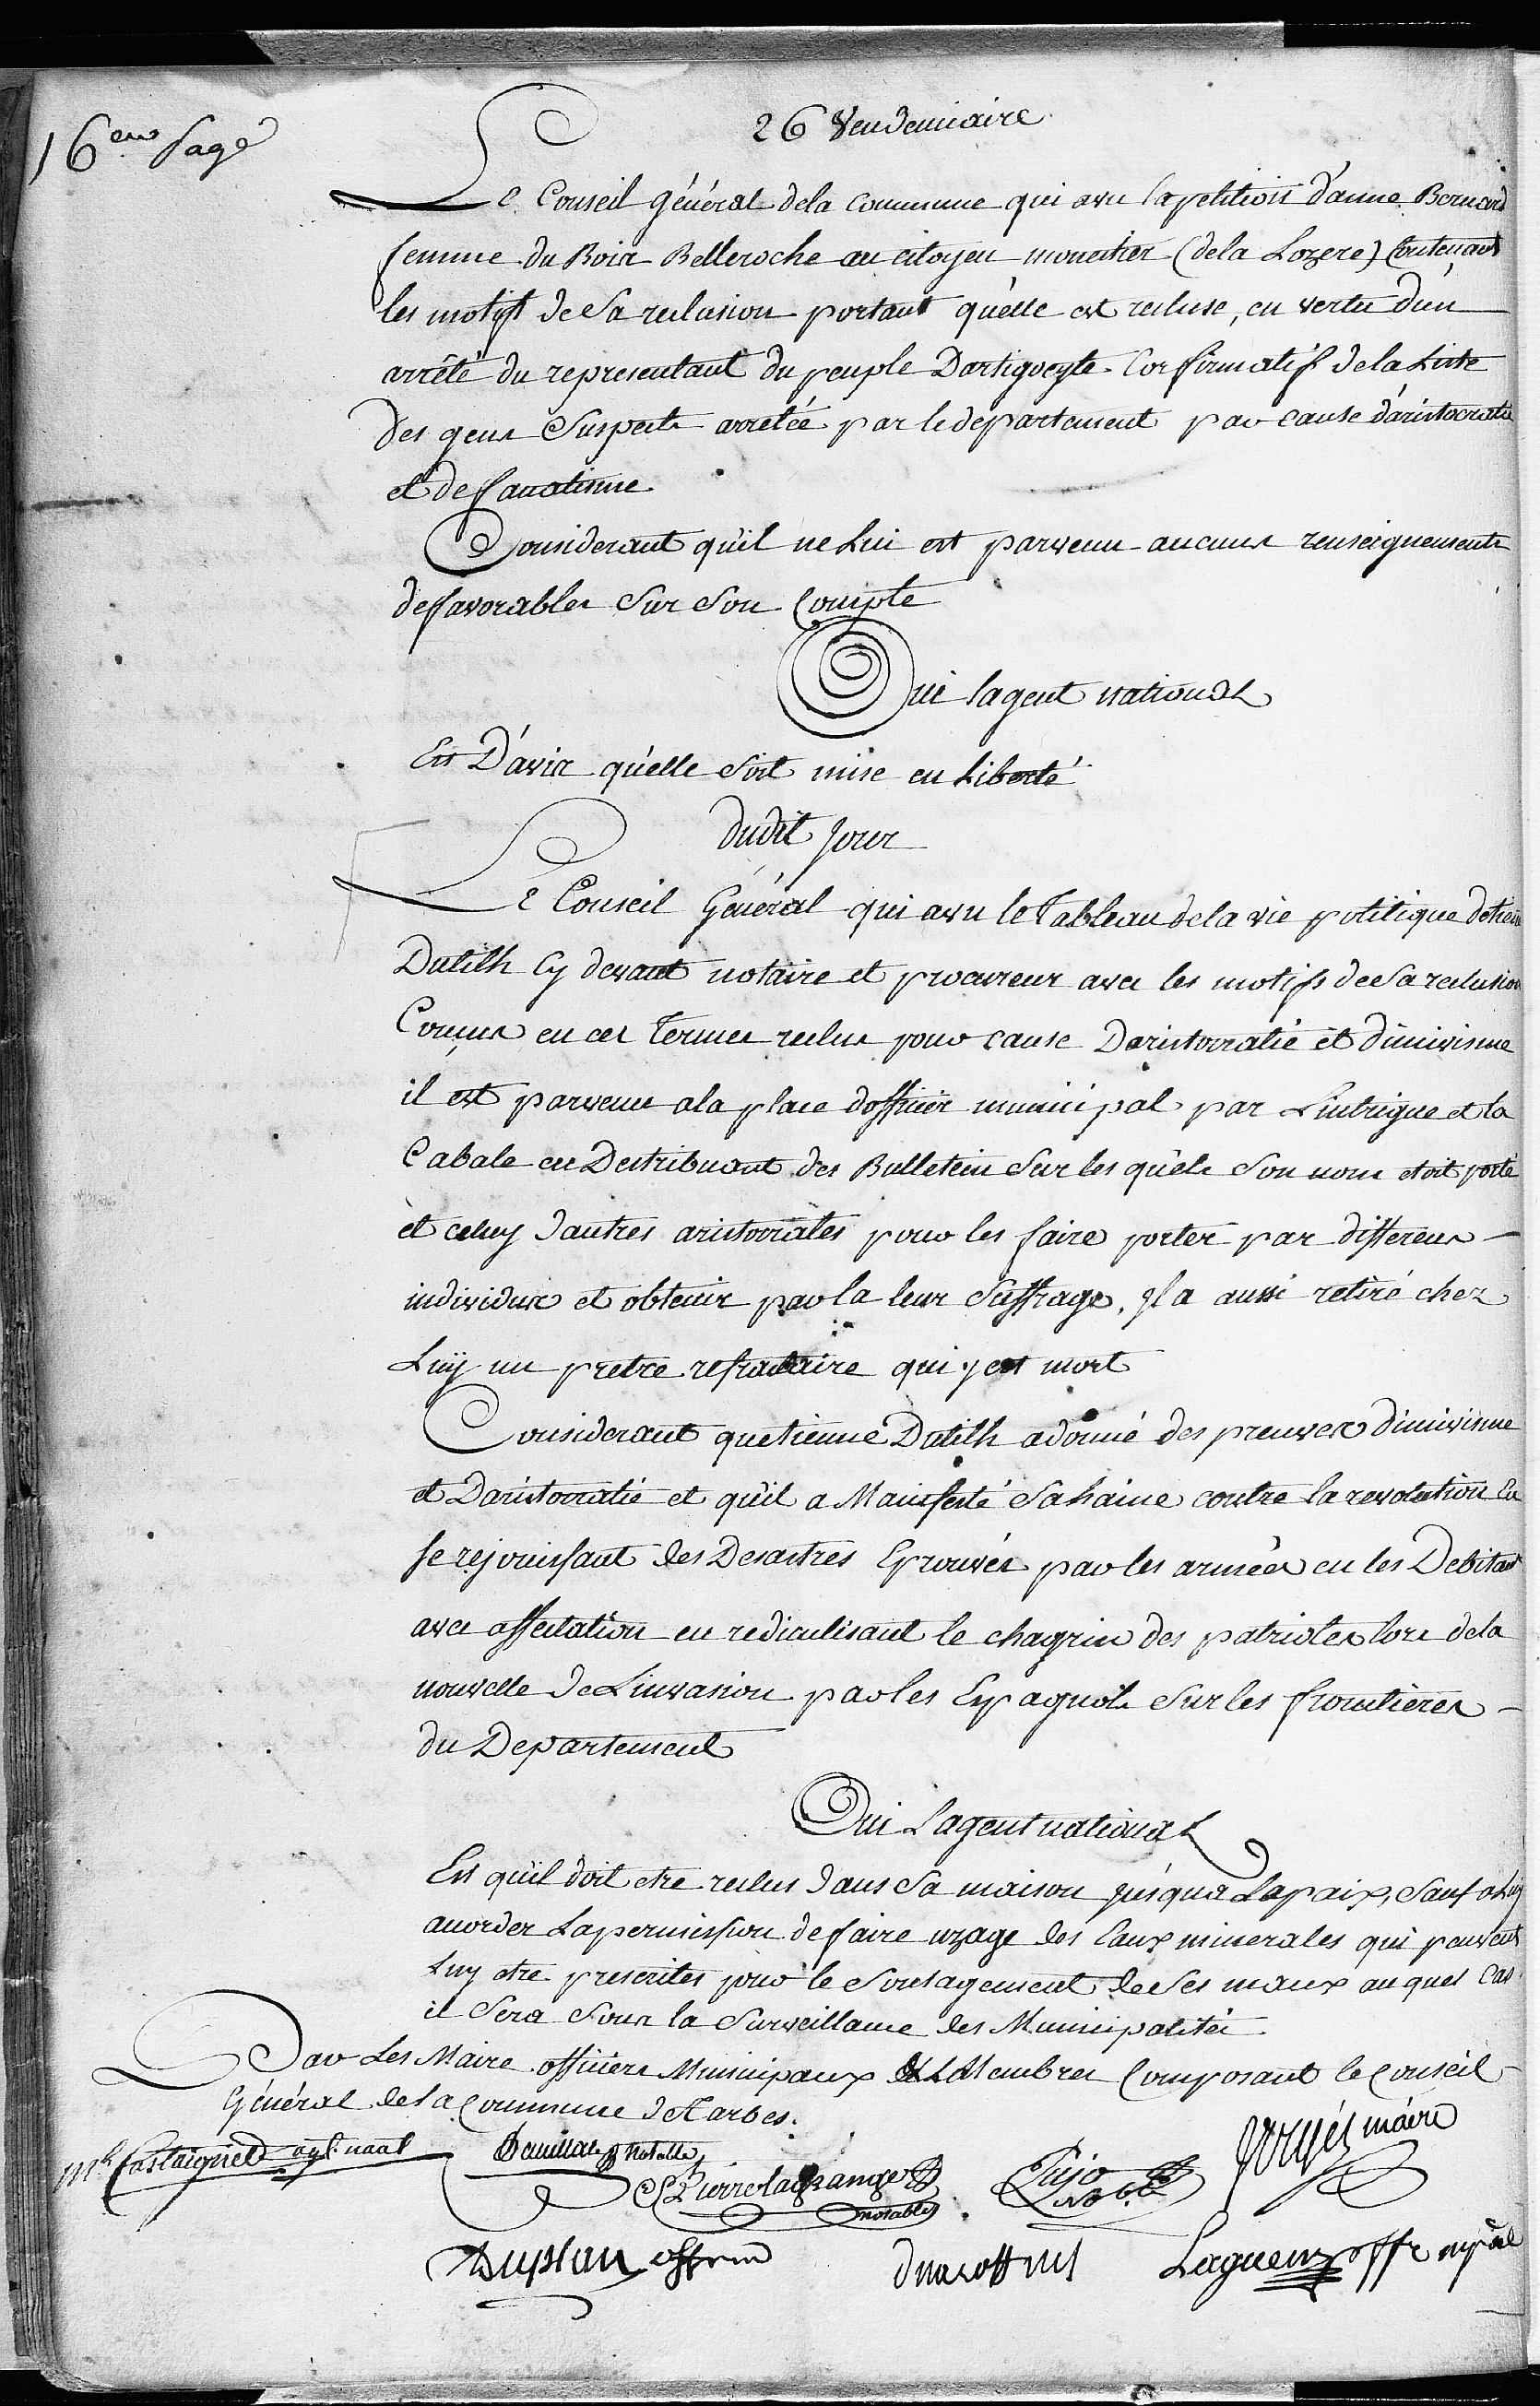 16eme page
26 Vendemiaire
Le Conseil général dela Commune qui avu lapetition d'anne Bernard
femme du Bois Belleroche au citoyen monestier (dela Lozere) Contenant
les motifs de Sa reclusion portant qu'elle est recluse, en vertu d'un
arrêté du representant du peuple Dartigoeyte Confirmatif dela Liste
des gens Suspects arretée par le departement par cause d'aristocratie
et de fanatisme
Considerant qu'il ne Lui est parvenu aucuns renseignements
deffavorables Sur Son Compte
Oui lagent national
Est D'avis qu'elle Soit mise en Liberté
dudit jour
Le Conseil Général qui avu le Tableau dela vie politique detienne
Dutilh Cy devant notaire et procureur avec les motifs de Sa reclusion
Conçus en ces Termes reclus pour cause Daristocratie et dincivisme
il est parvenu ala place dofficier municipal par Lintrigue et la
Cabale en Destribuant des Bulletein Sur les quels Son nom etoit porté
et celuy dautres aristocrates pour les faire porter par differens
individus et obtenir par la leur Suffrage, Il a aussi retiré chez
Luÿ un pretre refractaire qui y est mort
Considerant quetienne Dutilh adonné des preuves dincivisme
et Daristocratie et qu'il a Manifesté Sa haine contre la revolution En
se rejouissant des Desastres Eprouvés par les armées en les Debitant
avec affectation en rediculisant le chagrin des patriotes lors dela
nouvelle de Linvasion par les Espagnols Sur les frontieres
du Departement
Oui Lagent national
Est qu'il doit etre reclus dans Sa maison jusqua Lapaix, Sauf a Luy
accorder Lapermission de faire uzage des Eaux minerales qui peuvent
Luy etre prescrites pour le Soulagement de Ses maux au quel cas
il Sera Sous la Surveillance des Municipalités
Par Les Maire officiers Municipaux et Membres Composant le Conseil
Général de la Commune de Tarbes.
Castaignede agt. naal
notable
Pierre lagrange
notable
Pujo
Not.ble
maire
Duplan off mu
Lagleize offr mpal